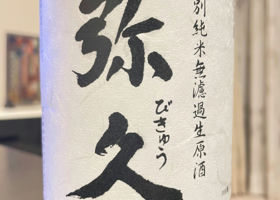 別純米無濾過生原酒
びきゅう
弥久